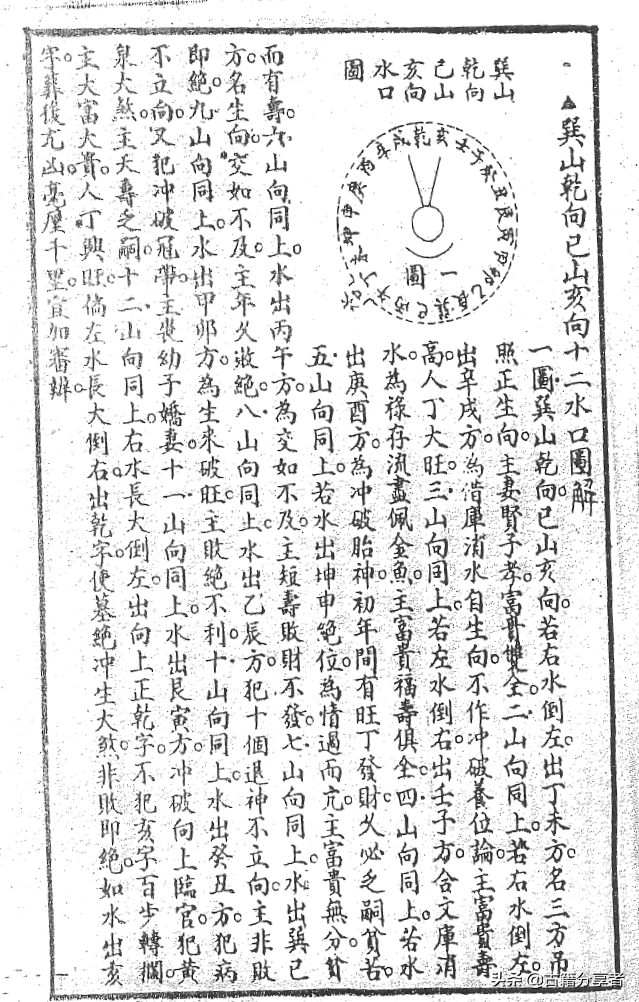 ▲巽山乾向巳山亥向十二水口圖解
一圖巽山乾向巳山亥向若右水倒左出丁未方名三方吊
照正生向主妻賢子孝富貴雙全二山向同上若右水倒左
出辛戌方為借庫消水自生向不作冲破養位論主富貴壽
高人丁大旺三山向同上若左水倒右出壬子方合文庫消
水為祿存流盡佩金魚主富貴福壽俱全四山向同上若水
出庚酉方為冲破胎神初年間有旺丁發財久必乏嗣貧苦
五山向同上若水出坤申絕位為情過而亢主富貴無分貧
而有壽六山向同上水出丙午方為交如不及主短壽敗財不發七山向同上水出巽巳
方名生向交如不及主年久敗絕八山向同上水出乙辰方犯十個退神不立向主非敗
即絕九山向同上水出甲卯方為生來破旺主敗絕不利十山向同上水出癸丑方犯病
不立向又犯冲破冠帶主喪幼子嬌妻十一山向同上水出艮寅方冲破向上臨官犯黃
泉大煞主夭壽乏嗣十二山向同上右水長大倒左出向上正乾字不犯亥字百步轉攔
主大富大貴人丁興旺倘左水長大倒右出乾字便墓絕冲生大煞非敗即絕如水出亥
字葬後尤凶毫厘千里宜加審辨
巽山
乾向
巳山
亥向
水口
圖
乾亥壬子癸丑艮寅甲卯乙辰巽巳丙午丁未坤申庚酉辛戌
一圖
头条@古籍分享者